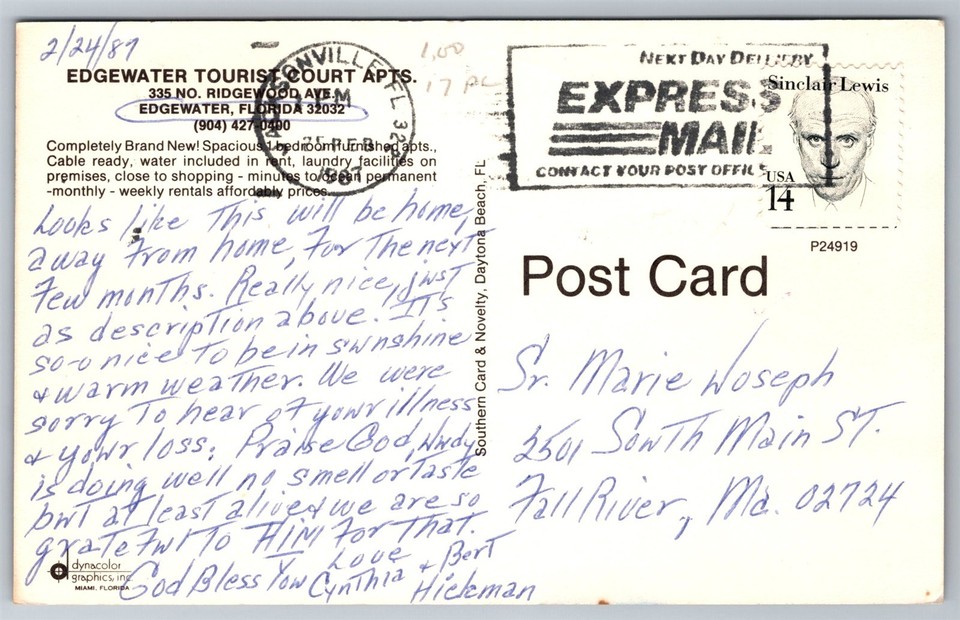 2/24/87
EDGEWATER TOURIST COURT APTS.
335 NO. RIDGEWOOD AVE.
EDGEWATER, FLORIDA 32032
(904) 427-0400
Completely Brand New! Spacious 1 bedroom furnished apts.,
Cable ready, water included in rent, laundry facilities on
premises, close to shopping - minutes to ocean permanent
-monthly - weekly rentals affordably prices.
Looks like This will be home,
away from home, for The next
few months. Really nice, just
as description above. It's
so-o nice To be in sunshine
& warm weather. We were
sorry To hear of your illness
& your loss; Praise God,
is doing well no smell or Taste
but at least alive & we are so
grateful To HIM For That.
God Bless You
Love
Cynthia & Bert
Hickman
dynacolor
graphics, inc.
MIAMI, FLORIDA
Southern Card & Novelty, Daytona Beach, FL
1.00
17
JACKSONVILLE, FL
PM
25 FEB
1987
NEXT DAY DELIVERY
EXPRESS
MAIL
CONTACT YOUR POST OFFICE
Sinclair Lewis
USA
14
P24919
Post Card
Sr. Marie Joseph
2501 South Main ST.
Fall River, Ma. 02724